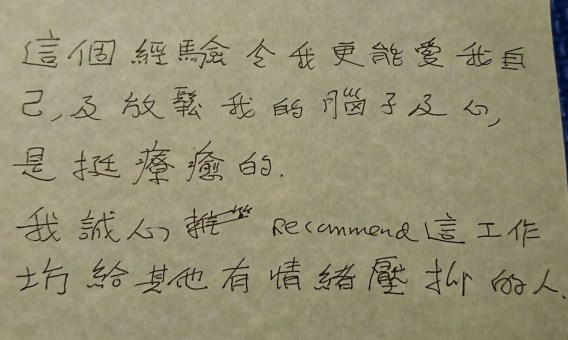 這個經驗令我更能愛我自
己,及放鬆我的腦子及心,
是挺療癒的.
我誠心推 Recommend這工作
坊給其他有情緒壓抑的人.